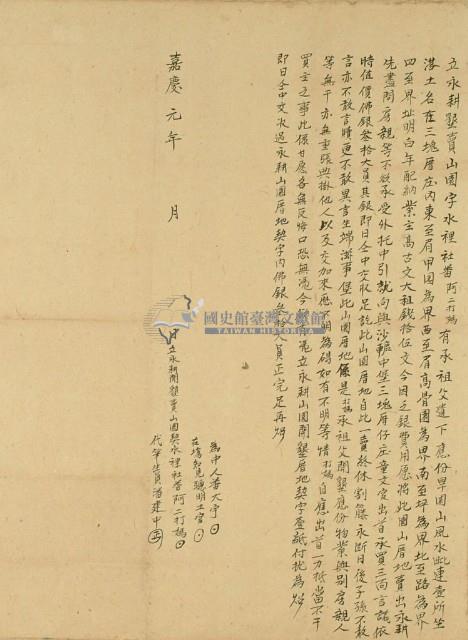 立永耕墾賣山園字水裡社番阿二打媽有承祖父遺下應份旱園山風水此連壹所坐
落土名在三塊厝庄內東至眉甲園為界西至眉高骨園為界南至坪為界北至路為界
四至界址明白年配納業主高古文大租錢拾伍文今因乏銀費用愿將此園山厝地賣出永耕
先盡問房親等不欲承受外托中引就向與沙轆中堡三塊厝仔庄童文定出首承買三面言議依
時值價佛銀叁拾大員其銀即日仝中交收足訖此山園厝地自此一賣終休割籐永斷日後子孫不敢
言亦不敢言贖更不敢異言生端滋事保此山園厝地係是打媽承祖父開墾應份物業與別房親人
等無干亦無重張典掛他人以及交加來歷不明為碍如有不明等情打媽自應出首一力抵當不干
買主之事此係甘愿各無反悔口恐無憑今立永耕山園開墾厝地契字壹紙付执為炤
即日仝中交收過永耕山園厝地契字內佛銀叁拾大員正完足再炤
為中人番大宇
在場知見聰明土官
嘉慶元年 月 日立永耕開墾賣山園契水裡社番阿二打媽
代筆生員潘建中
國史館臺灣文獻館
TAIWAN HISTORICA